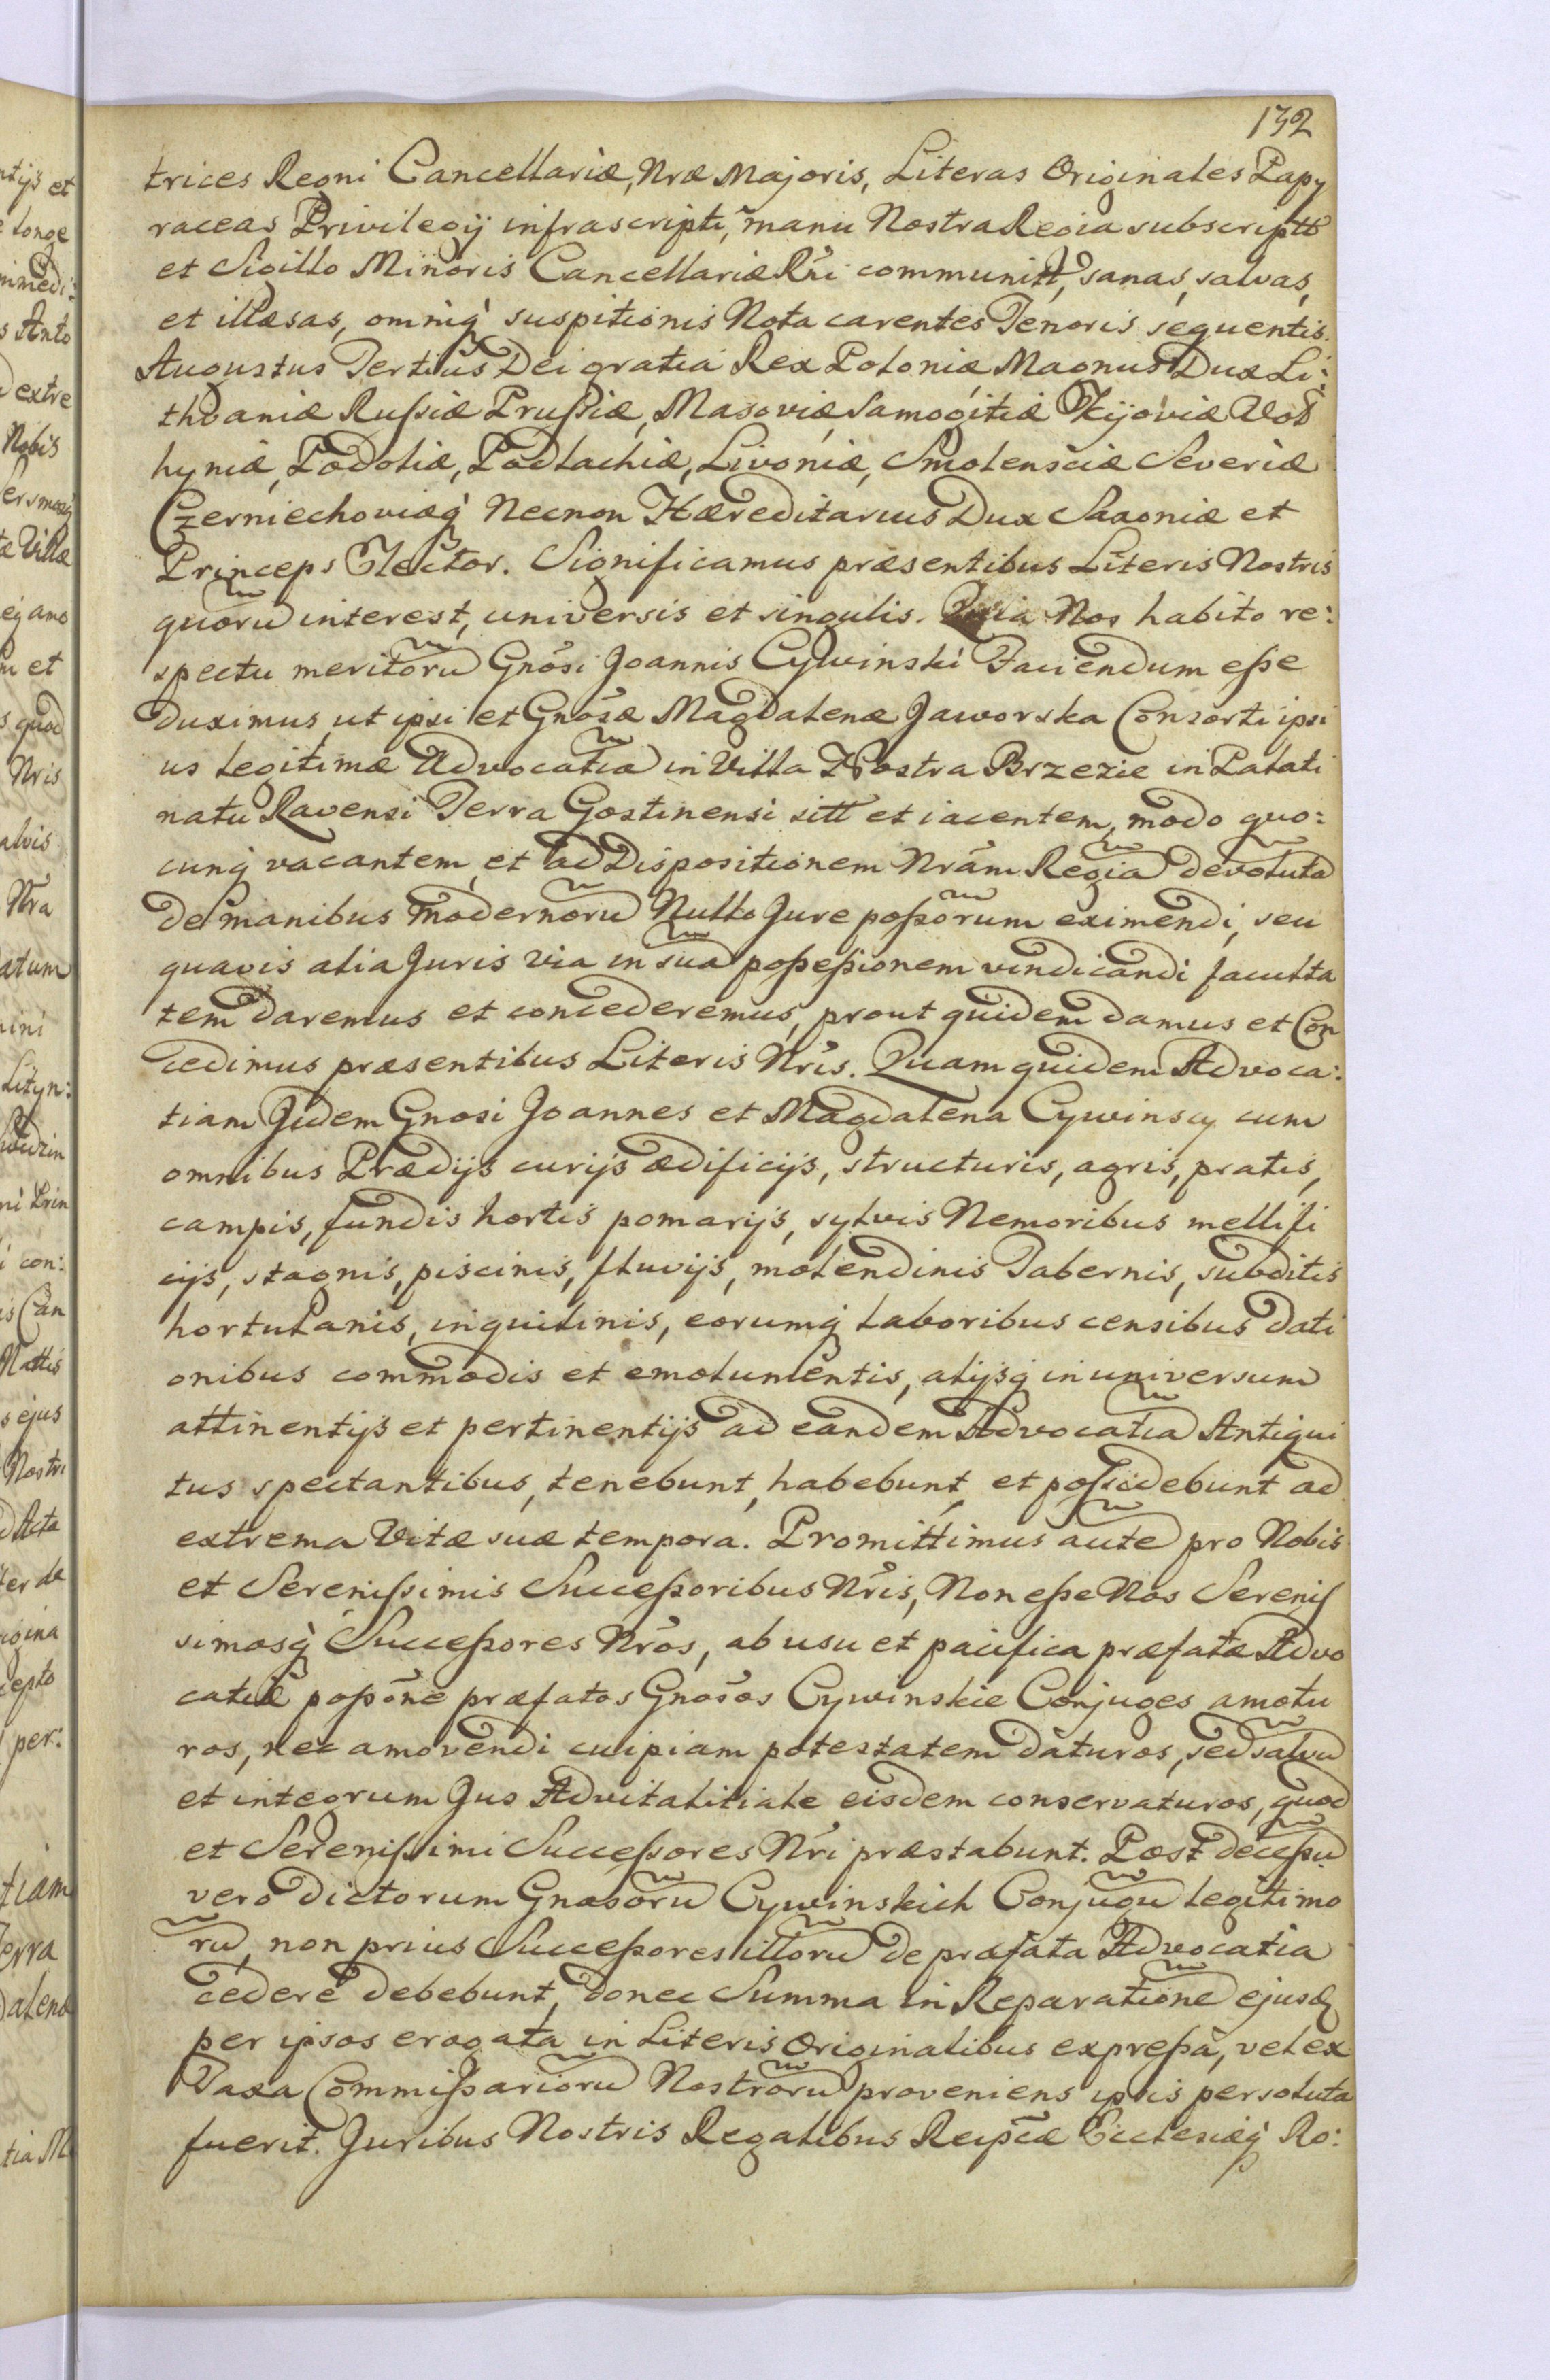 132
trices Regni Cancellariæ, Nræ Majoris, Literas Originales Papy
raceas Privilegij infrascripti, manu Nostra Regia subscriptt
et Sigillo Minoris Cancellariæ Rñi communitt, sanas, salvas,
et illæsas, omniq̀ suspitionis Nota carentes Tenoris sequentis.
Augustus Tertius Dei gratia Rex Poloniæ Magnus Dux Li:
thvaniæ Rußiæ Prußiæ, Masoviæ Samogitiæ Kijoviæ Vol
hyniæ, Podoliæ, Podlachiæ, Livoniæ, Smolensciæ Severiæ
Czerniechoviæq̀ Necnon Hæreditarius Dux Saxoniæ et
Princeps Elector. Significamus præsentibus Literis Nostris
quorũ interest, universis et singulis. Quia Nos habito re:
spectu meritorũ Gnõsi Joannis Cywinski Faciendum eße
duximus, ut ipsi et Gnõsæ Magdalenæ Jaworska Consorti ipsi
us legitimæ Advocatiã in Villa Nostra Brzezie in Palati
natu Ravensi Terra Gostinensi sitt et iacentem, modo quo:
cunq̀ vacantem, et ad Dispositionem Nrãm Regiã devolutã
de manibus modernorũ Nullo Jure poßõrum eximendi, seu
quavis alia Juris via in suã poßeßionem vindicandi faculta
tem daremus et concederemus, prout quidem damus et Con
cedimus præsentibus Literis Nrĩs. Quam quidem Advoca:
tiam Jidem Gnosi Joannes et Magdalena Cywinscy cum
omnibus Prædijs curijs ædificijs, structuris, agris, pratis,
campis, fundis hortis pomarijs, sylvis Nemoribus mellifi
cijs, stagnis, piscinis, fluvijs, molendinis Tabernis, subditis
hortulanis, inquilinis, eorumq̀ laboribus censibus dati
onibus commodis et emolumentis, alijsq̀ in universum
attinentijs et pertinentijs ad eandem Advocatiã Antiqui
tus spectantibus, tenebunt, habebunt, et poßidebunt ad
extrema Vitæ suæ tempora. Promittimus autẽ pro Nobis
et Sereniſsimis Succeßoribus Nrĩs, Non eße Nos Sereniſ
simosq̀ Succeßores Nrõs, ab usu et pacifica præfatæ Advo
catiæ poßõne præfatos Gnosõs Cywinskie Conjuges amotu
ros, nec amovendi cuipiam potestatem daturos, sed salvũ
et integrum Jus Advitalitiale eisdem conservaturos, quod
et Sereniſsimi Succeßores Nrĩ præstabunt. Post deceßũ
vero dictorum Gnosorũ Cywinskich Conjugũ legitimo
rũ, non prius Succeßores illorũ de præfata Advocatia
cedere debebunt, donec Summa in Reparationẽ ejusdẽ
per ipsos erogata in Literis Originalibus expreßa, vel ex
Taxa Commißariorũ Nostrorũ proveniens ipsis persoluta
fuerit. Juribus Nostris Regalibus Reipcæ Ecclesiæq̀ Ro: